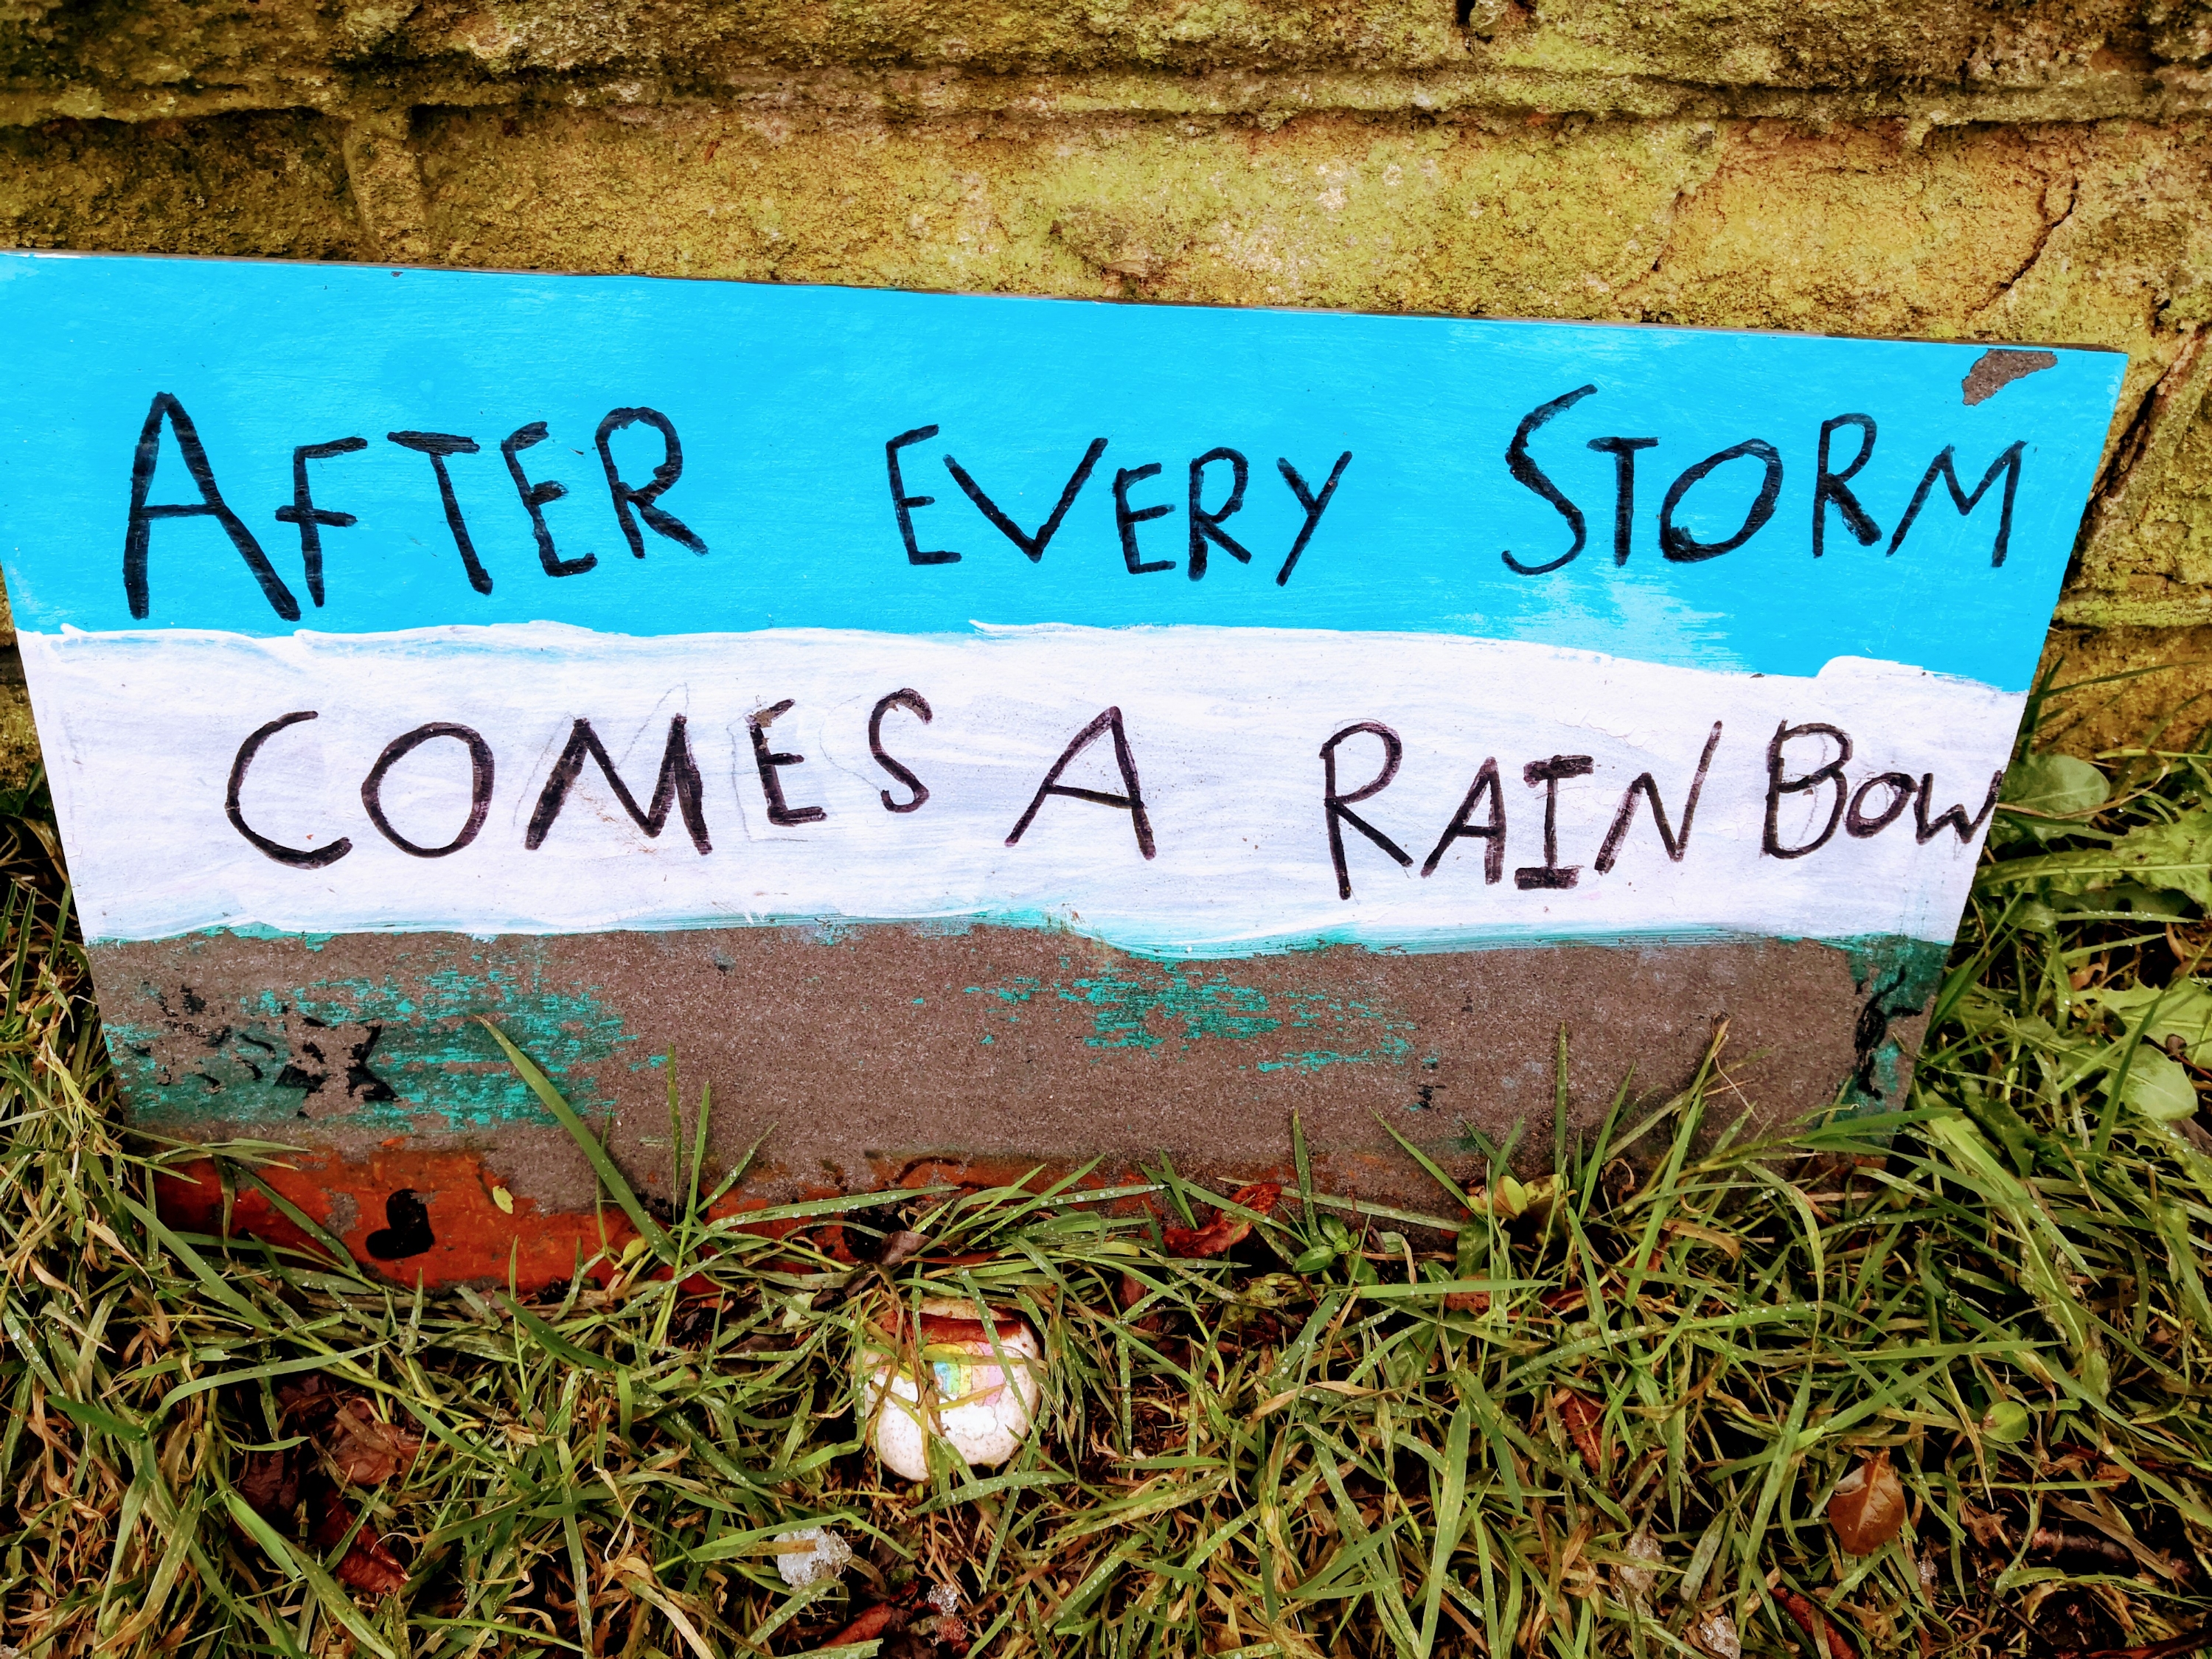 AFTER EVERY STORM
COMES A RAINBOW